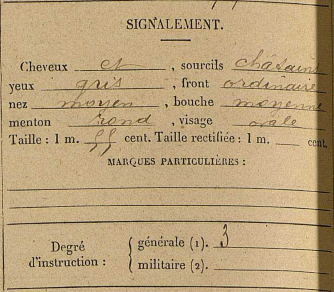 SIGNALEMENT.
Cheveux et , sourcils châtains
yeux gris , front ordinaire
nez moyen , bouche moyenne
menton rond , visage ovale
Taille : 1 m. 55 cent. Taille rectifiée : 1 m. cent.
MARQUES PARTICULIÈRES :
Degré d'instruction : { générale (1). 3
militaire (2).